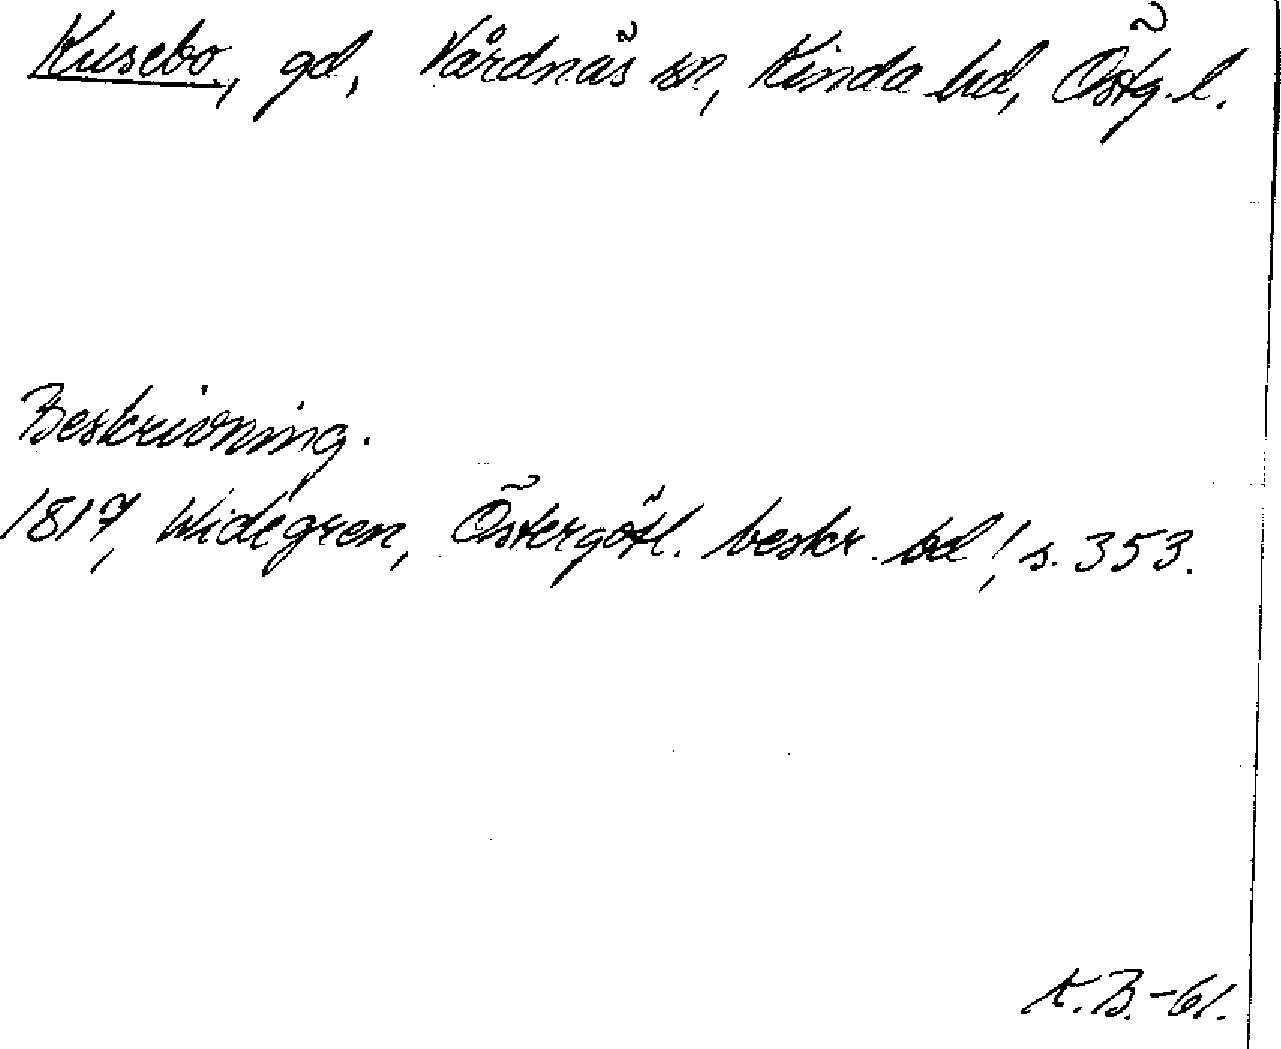 Kusebo, gd, Vårdnäs sn, Kinda hd, Östg. l.
Beskrivning.
1817, Widegren, Östergötl. beskr. bd 1, s. 353.
K.B.-61.